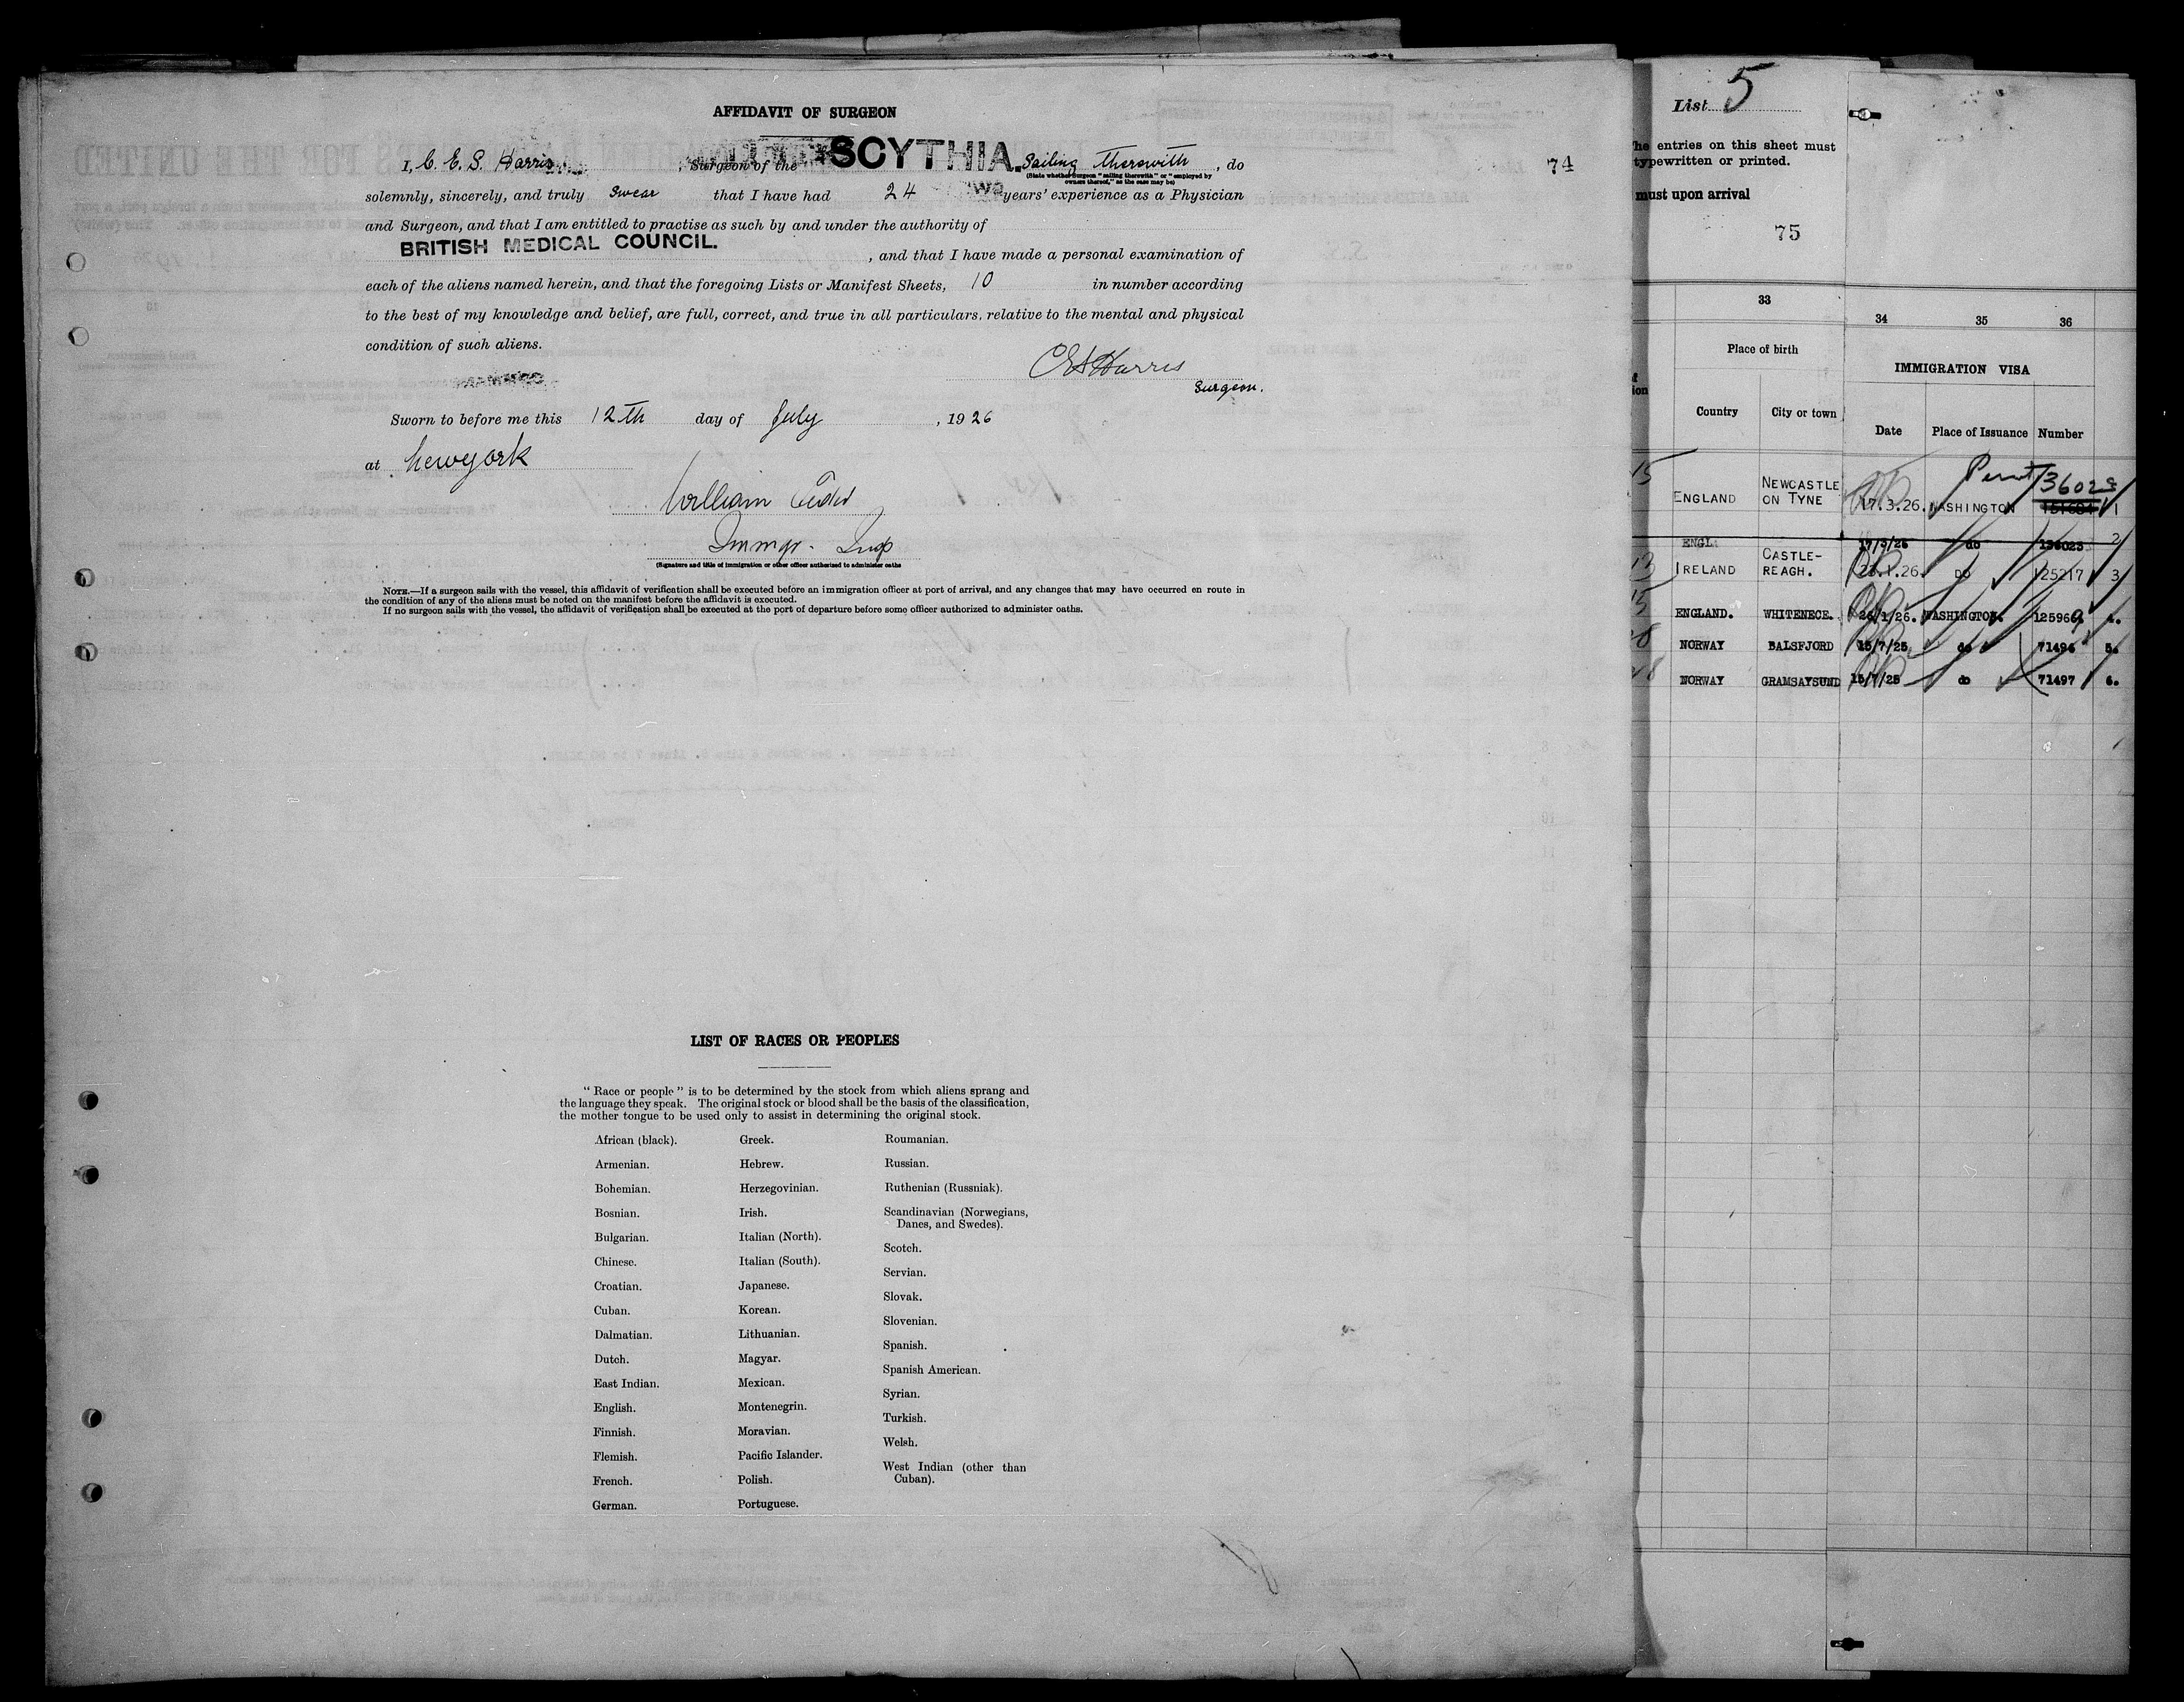 AFFIDAVIT OF SURGEON
I, C. E. S. Harris, Surgeon of the SCYTHIA. Sailing therewith, do
(State whether Surgeon "sailing therewith" or "employed by
owners thereof," as the case may be)
solemnly, sincerely, and truly swear that I have had 24 years' experience as a Physician
and Surgeon, and that I am entitled to practise as such by and under the authority of
BRITISH MEDICAL COUNCIL.
, and that I have made a personal examination of
each of the aliens named herein, and that the foregoing Lists or Manifest Sheets, 10 in number according
to the best of my knowledge and belief, are full, correct, and true in all particulars, relative to the mental and physical
condition of such aliens.
CES Harris
Surgeon.
Sworn to before me this 12th day of July, 1926
at New York
William
Immgr. Insp
(Signature and title of immigration or other officer authorized to administer oaths
NOTE.—If a surgeon sails with the vessel, this affidavit of verification shall be executed before an immigration officer at port of arrival, and any changes that may have occurred en route in
the condition of any of the aliens must be noted on the manifest before the affidavit is executed.
If no surgeon sails with the vessel, the affidavit of verification shall be executed at the port of departure before some officer authorized to administer oaths.
74
LIST OF RACES OR PEOPLES
"Race or people" is to be determined by the stock from which aliens sprang and
the language they speak. The original stock or blood shall be the basis of the classification,
the mother tongue to be used only to assist in determining the original stock.
African (black).
Armenian.
Bohemian.
Bosnian.
Bulgarian.
Chinese.
Croatian.
Cuban.
Dalmatian.
Dutch.
East Indian.
English.
Finnish.
Flemish.
French.
German.
Greek.
Hebrew.
Herzegovinian.
Irish.
Italian (North).
Italian (South).
Japanese.
Korean.
Lithuanian.
Magyar.
Mexican.
Montenegrin.
Moravian.
Pacific Islander.
Polish.
Portuguese.
Roumanian.
Russian.
Ruthenian (Russniak).
Scandinavian (Norwegians,
Danes, and Swedes).
Scotch.
Servian.
Slovak.
Slovenian.
Spanish.
Spanish American.
Syrian.
Turkish.
Welsh.
West Indian (other than
Cuban).
List 5
The entries on this sheet must
typewritten or printed.
must upon arrival
75
33 34 35 36
Place of birth
IMMIGRATION VISA
Country City or town Date Place of Issuance Number
ENGLAND NEWCASTLE ON TYNE 17.3.26. WASHINGTON 1
ENGLA 17/3/26 do 136023 2
IRELAND CASTLE-REAGH. 23.1.26. DO 125217 3
ENGLAND. WHITENECE. 26/1/26. WASHINGTON. 125969 4.
NORWAY BALSFJORD 15/7/25 do 71496 5.
NORWAY GRAMSAYSUND 15/7/25 do 71497 6.